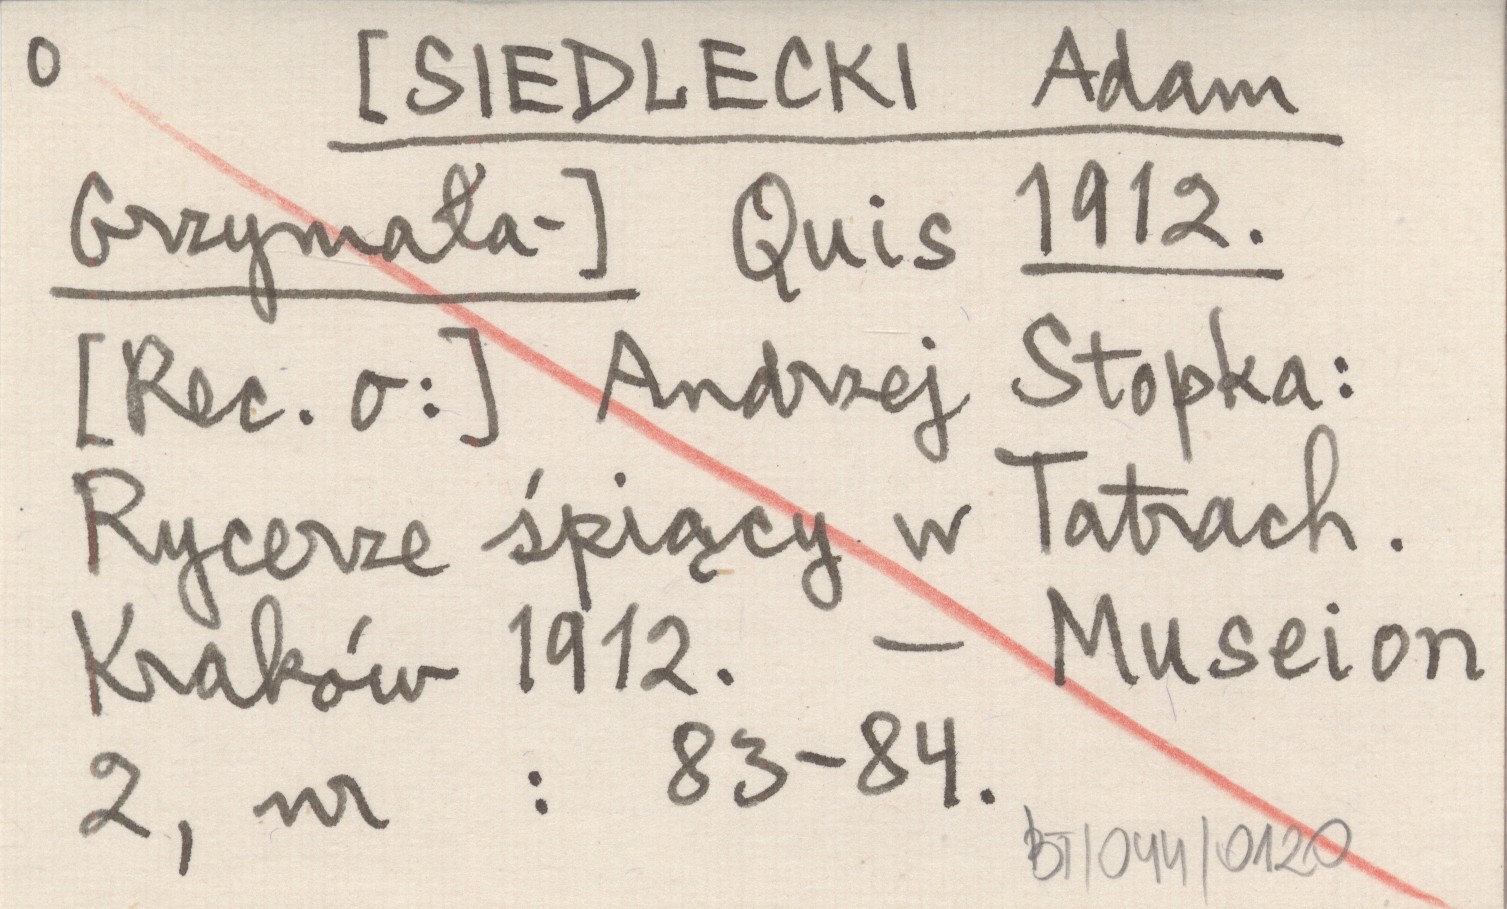 0 [SIEDLECKI Adam
Grzymała-] Quis 1912.
[Rec. o:] Andrzej Stopka:
Rycerze śpiący w Tatrach.
Kraków 1912. – Museion
2, nr : 83-84.
BT/044/0120